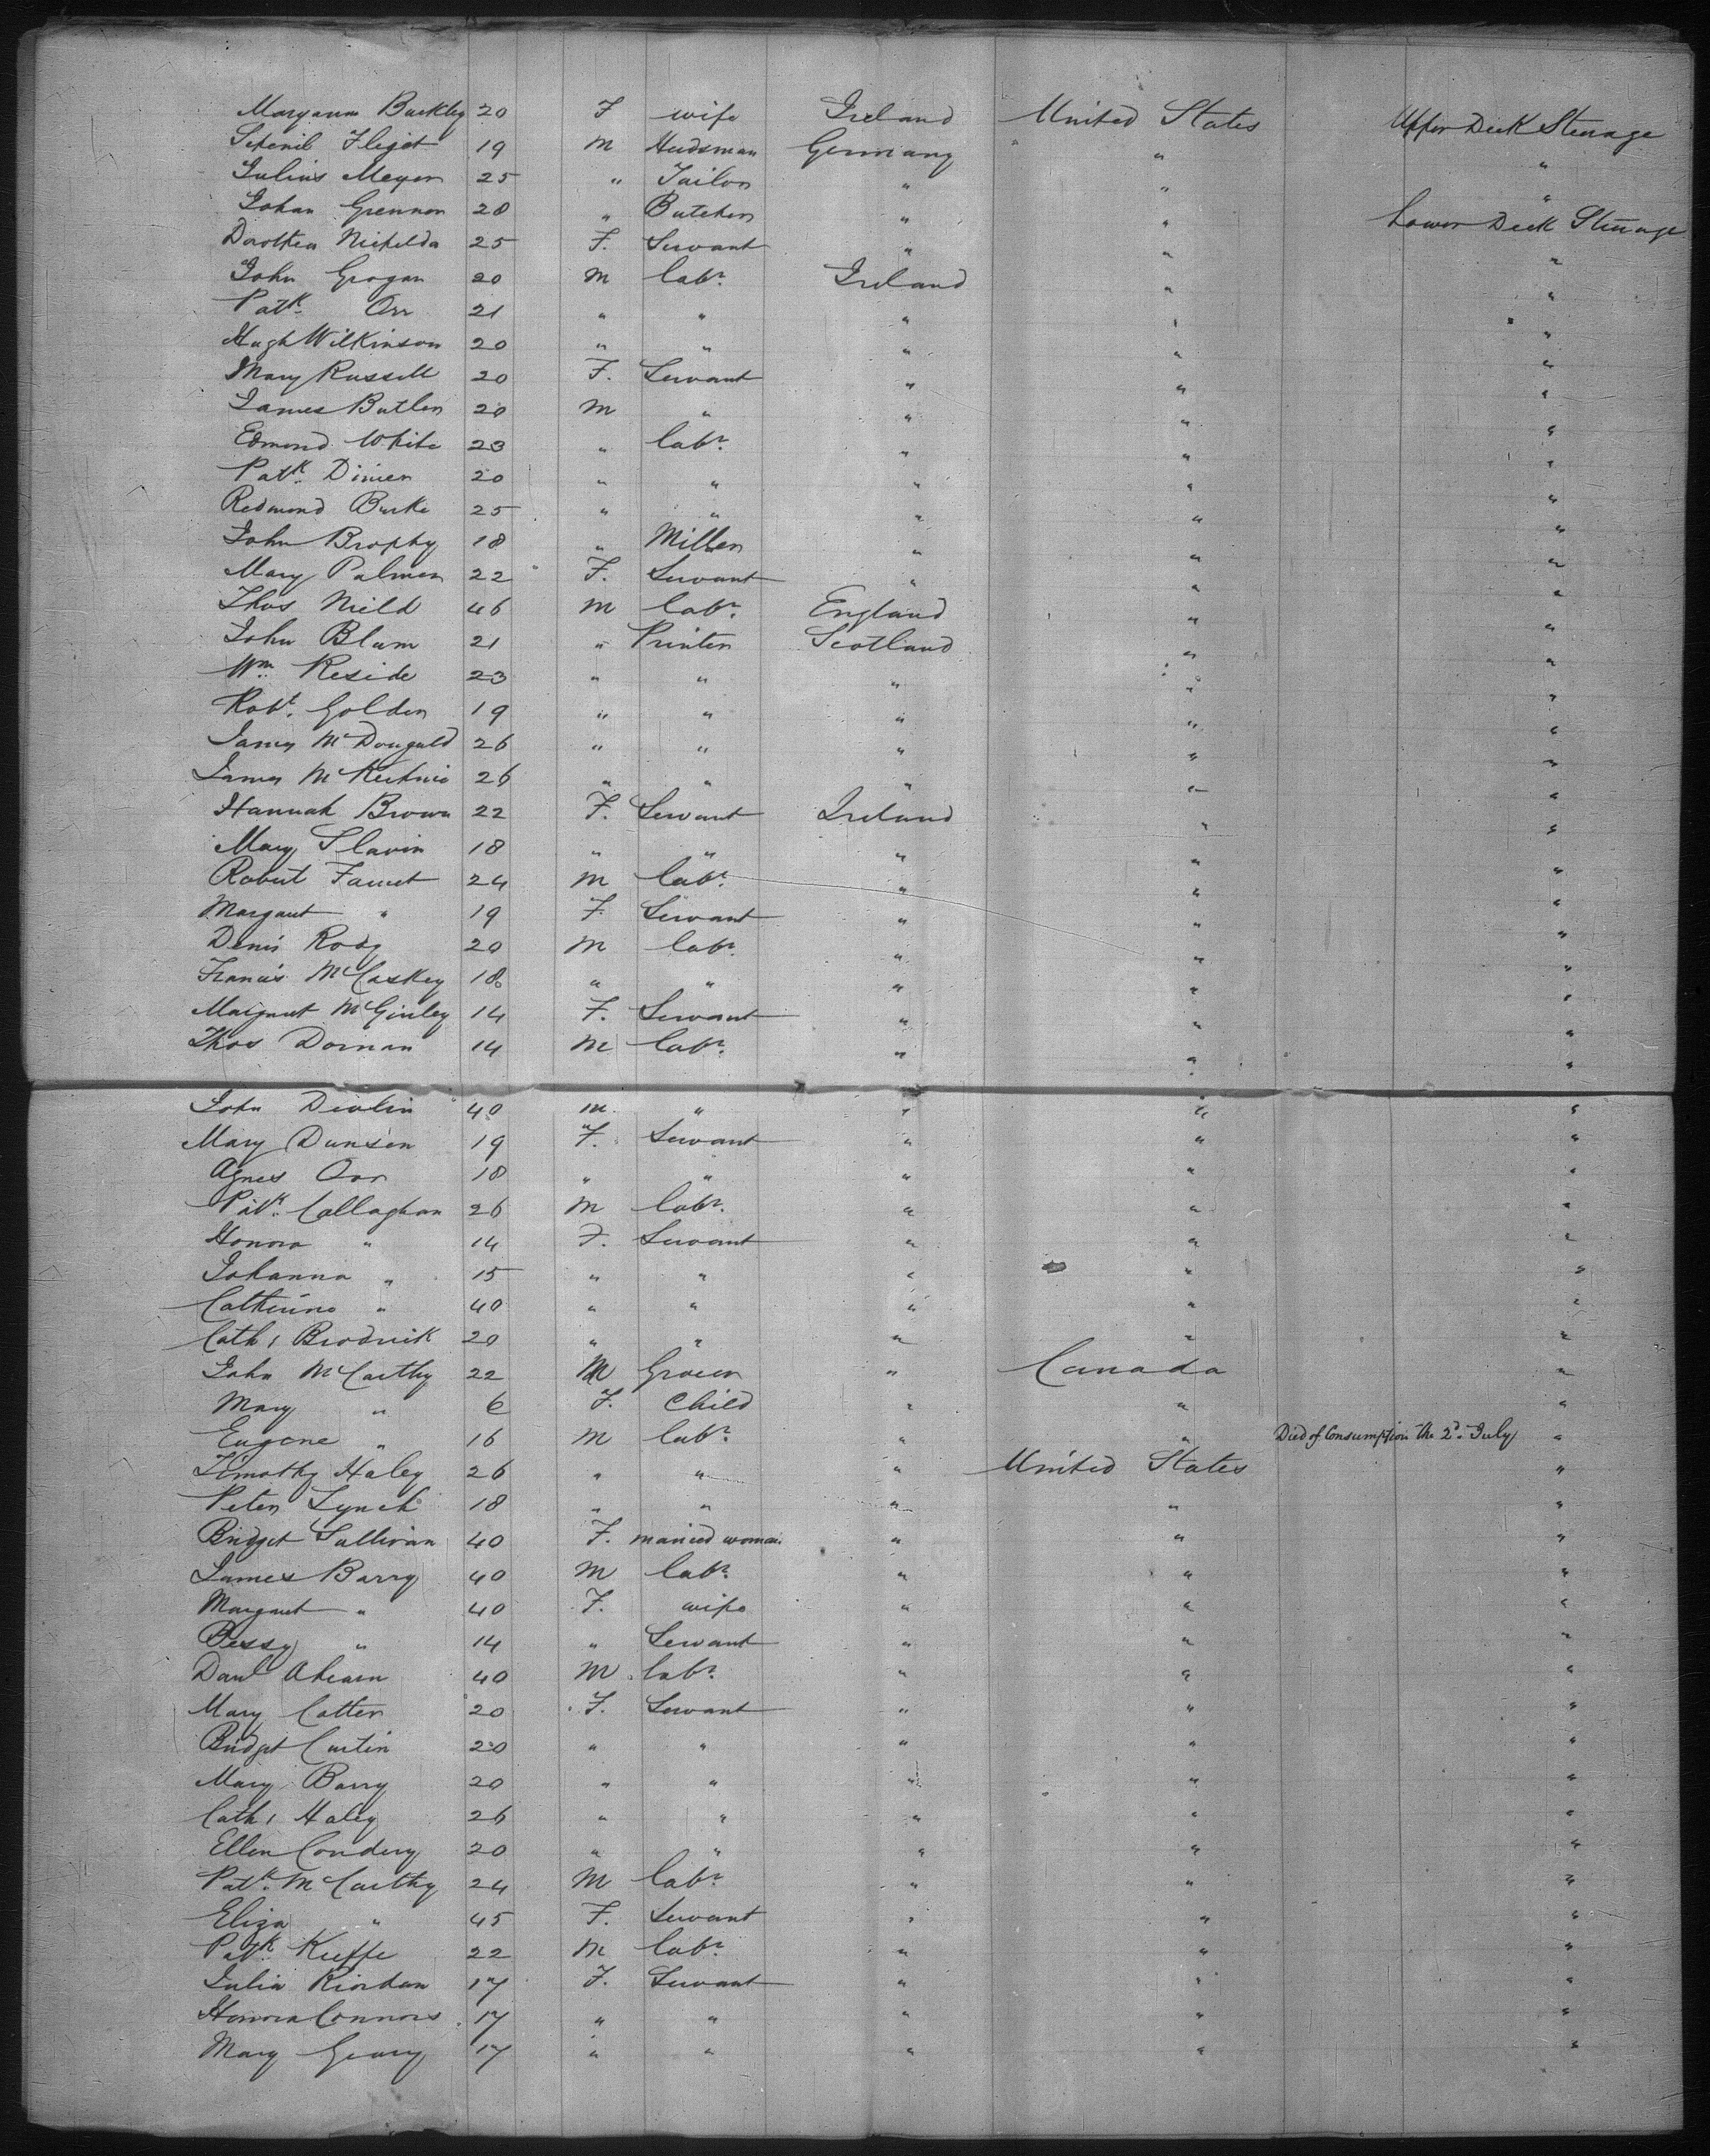 Maryann Buckley 20 F wife Ireland United States Upper Deck Steerage
19 M Herdsman Germany " "
Julius Meyer 25 " Tailor " " "
Johan Grennon 28 " Butcher " " Lower Deck Steerage
Dorothea 25 F. Servant " " "
John Grogan 20 M labr. Ireland " "
Patk. Orr 21 " " " " "
Hugh Wilkinson 20 " " " " "
Mary Russell 20 F. Servant " " "
James Butler 20 M " " " "
Edmond White 23 " labr. " " "
Patk. Dinien 20 " " " " "
Redmond Burke 25 " " " " "
John Brophy 18 " Miller " " "
Mary Palmer 22 F. Servant " " "
Thos Nield 46 M labr. England " "
John Blam 21 " Printer Scotland " "
Wm. Reside 23 " " " " "
Robt. Golden 19 " " " " "
James McDougald 26 " " " " "
James McKechnie 26 " " " " "
Hannah Brown 22 F. Servant Ireland " "
Mary Slavin 18 " " " " "
Robert Faucet 24 M labr. " " "
Margaret " 19 F. Servant " " "
Denis Rody 20 M labr. " " "
Francis McCaskey 18 " " " " "
Margaret McGinley 14 F. Servant " " "
Thos Dornan 14 M labr. " " "
John Devlin 40 M " " " "
Mary Dunsen 19 F. Servant " " "
Agnes Orr 18 " " " " "
Patk. Callaghan 26 M labr. " " "
Honora " 14 F. Servant " " "
Johanna " 15 " " " " "
Catherine " 40 " " " " "
Cath: Brodrick 20 " " " " "
John McCarthy 22 M Grocer " Canada "
Mary " 6 F. Child " " "
Eugene " 16 M labr. " " Died of Consumption the 2d. July "
Timothy Haley 26 " " " United States "
Peter Lynch 18 " " " " "
Bridget Sullivan 40 F. married woman " " "
James Barry 40 M labr. " " "
Margaret " 40 F. wife " " "
Bessy " 14 " Servant " " "
Danl Ahearn 40 M labr. " " "
Mary Cotter 20 F. Servant " " "
Bridget Curtin 20 " " " " "
Mary Barry 20 " " " " "
Cath: Haley 26 " " " " "
Ellen Condery 20 " " " " "
Patk. McCarthy 24 M labr. " " "
Eliza " 45 F. Servant " " "
Patk. Keeffe 22 M labr. " " "
Julia Riordan 17 F. Servant " " "
Honora Connors 17 " " " " "
Mary Geary 17 " " " " "